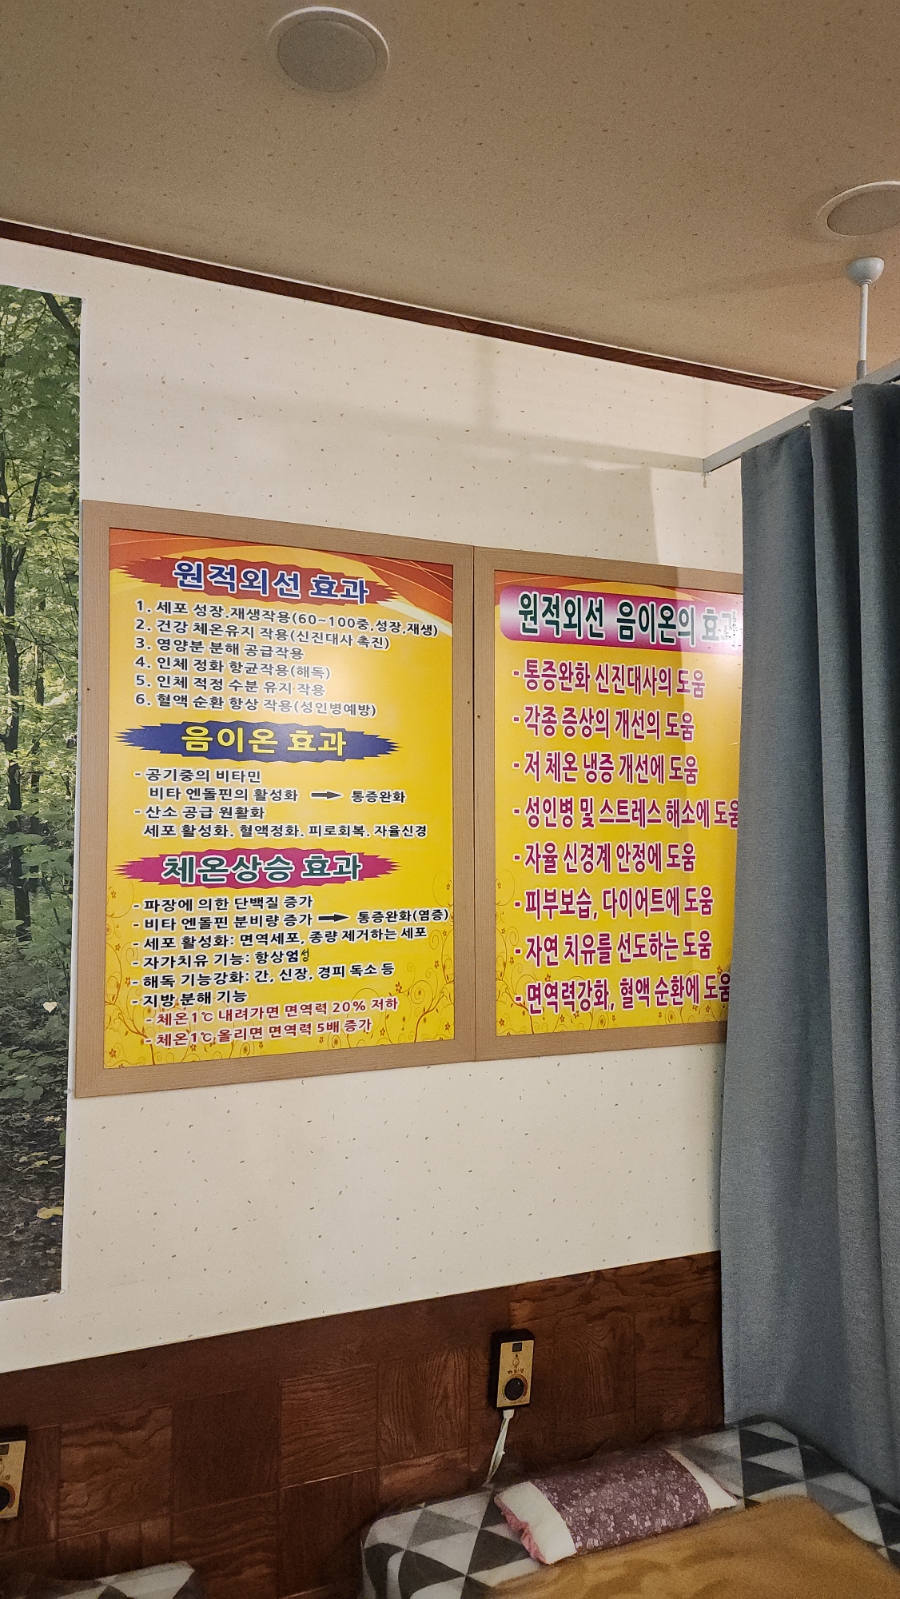 원적외선 효과
1. 세포 성장.재생작용(60~100중,성장,재생)
2. 건강 체온유지 작용(신진대사 촉진)
3. 영양분 분해 공급작용
4. 인체 정화 항균작용(해독)
5. 인체 적정 수분 유지 작용
6. 혈액 순환 향상 작용(성인병예방)
음이온 효과
- 공기중의 비타민
비타 엔돌핀의 활성화 → 통증완화
- 산소 공급 원활화
세포 활성화. 혈액정화. 피로회복. 자율신경
체온상승 효과
- 파장에 의한 단백질 증가
- 비타 엔돌핀 분비량 증가 → 통증완화(염증)
- 세포 활성화: 면역세포, 종량 제거하는 세포
- 자가치유 기능: 항상염성
- 해독 기능강화: 간, 신장, 경피 독소 등
- 지방 분해 기능
- 체온1℃ 내려가면 면역력 20% 저하
- 체온1℃올리면 면역력 5배 증가
원적외선 음이온의 효과
- 통증완화 신진대사의 도움
- 각종 증상의 개선의 도움
- 저 체온 냉증 개선에 도움
- 성인병 및 스트레스 해소에 도움
- 자율 신경계 안정에 도움
- 피부보습, 다이어트에 도움
- 자연 치유를 선도하는 도움
- 면역력강화, 혈액 순환에 도움